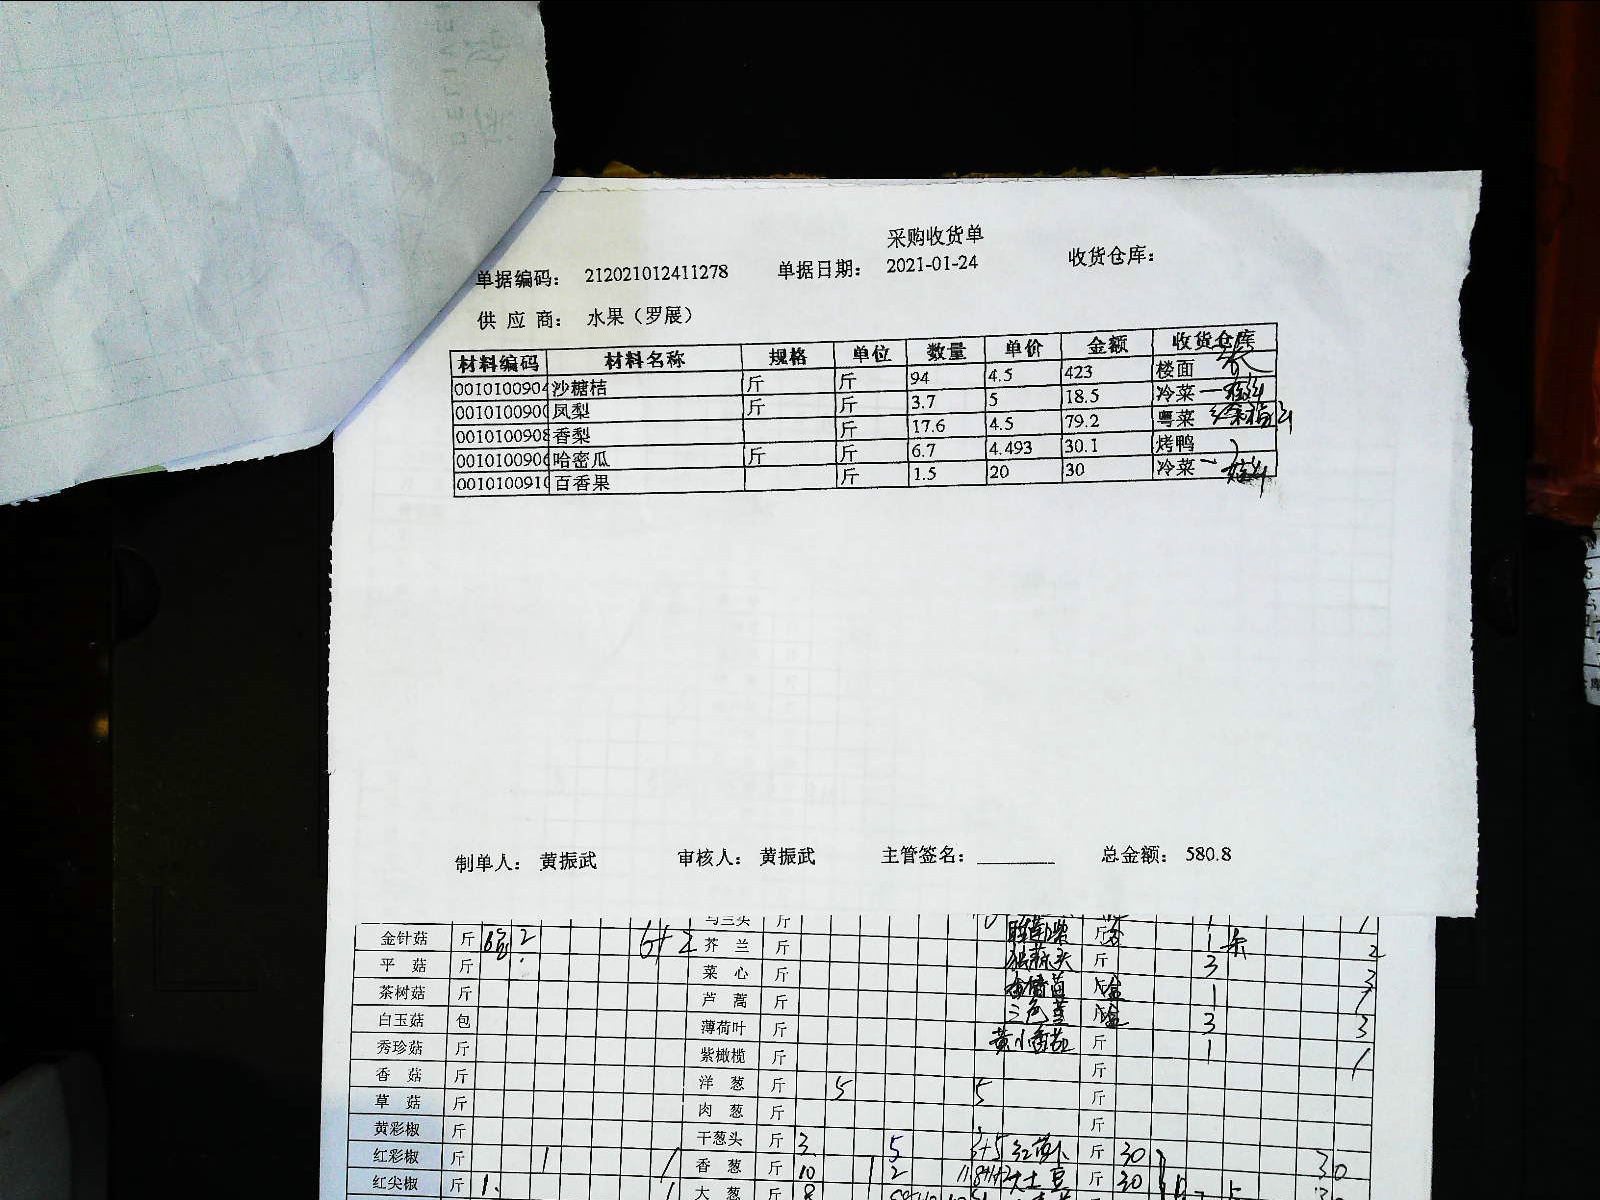 采购收货单
单据编码： 212021012411278 单据日期： 2021-01-24 收货仓库：
供 应 商： 水果（罗展）
材料编码 材料名称 规格 单位 数量 单价 金额 收货仓库
0010100904 沙糖桔 斤 斤 94 4.5 423 楼面
0010100900 凤梨 斤 斤 3.7 5 18.5 冷菜
0010100908 香梨 斤 17.6 4.5 79.2 粤菜
0010100906 哈密瓜 斤 斤 6.7 4.493 30.1 烤鸭
0010100910 百香果 斤 1.5 20 30 冷菜
制单人： 黄振武 审核人： 黄振武 主管签名： 总金额： 580.8
马兰头 斤 1 1
金针菇 斤 2 6+2 芥 兰 斤 斤 1 2
平 菇 斤 菜 心 斤 斤 3 3
茶树菇 斤 芦 蒿 斤 盒 1 1
白玉菇 包 薄荷叶 斤 盒 3 3
秀珍菇 斤 紫橄榄 斤 斤 1 1
香 菇 斤 洋 葱 斤 5 5 斤
草 菇 斤 肉 葱 斤 斤
黄彩椒 斤 干葱头 斤 3 5 3+5 红萝卜 斤 30 30
红彩椒 斤 1 1 香 葱 斤 10 1 2 大土豆 斤 30
红尖椒 斤 1 1 大 葱 斤 8